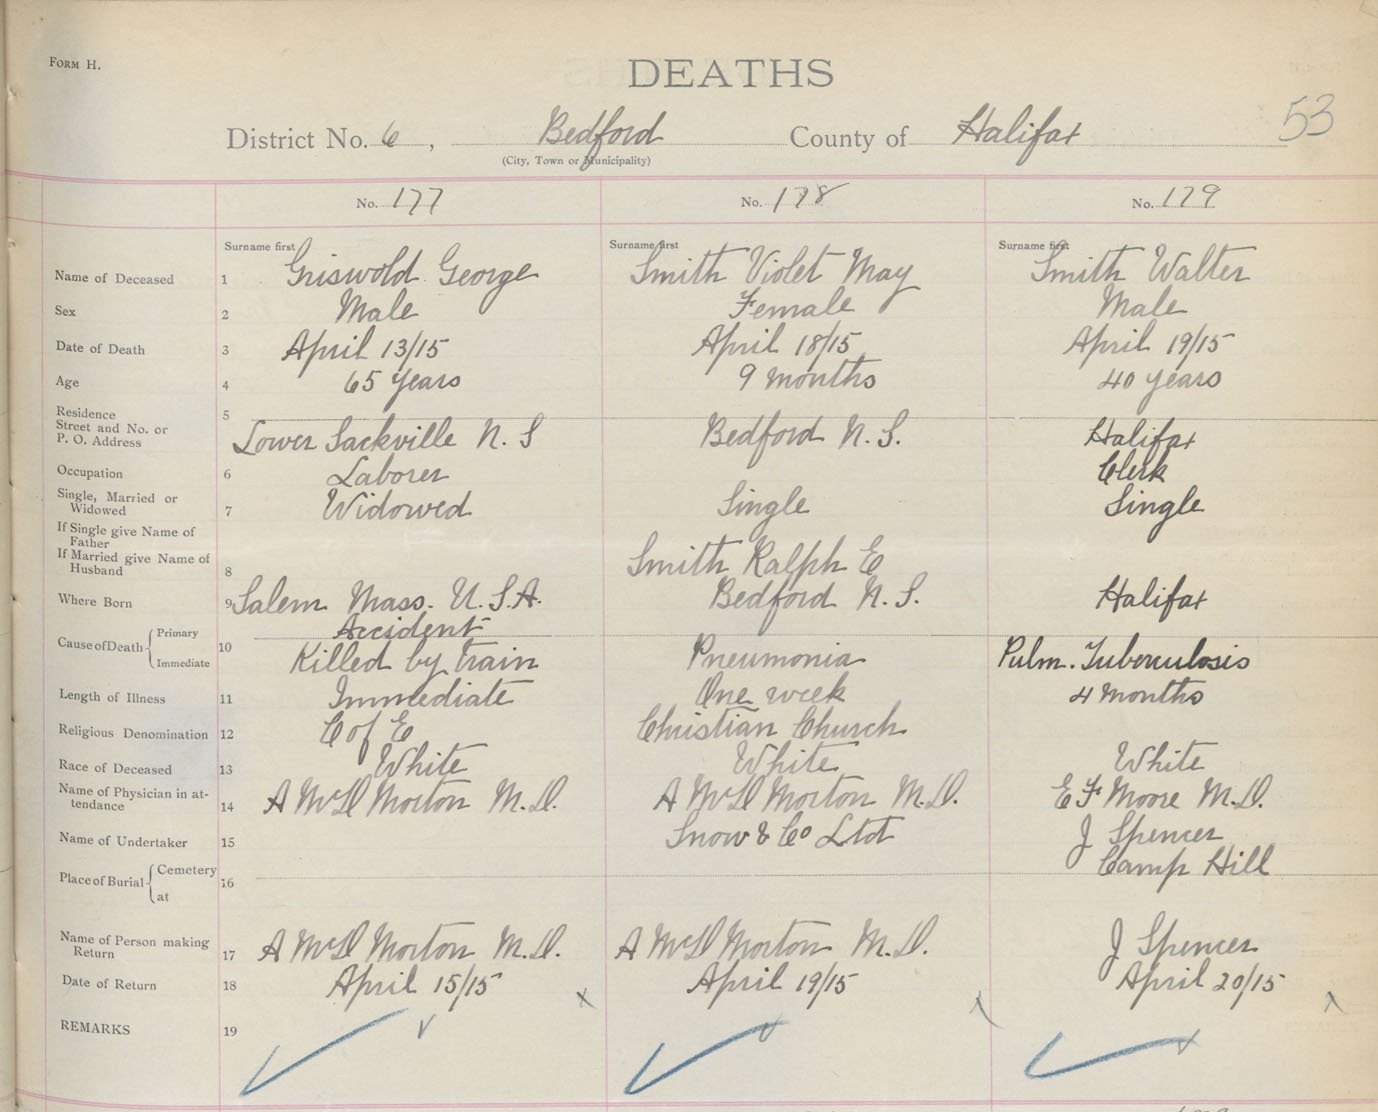 FORM H.
DEATHS
53
District No. 6, Bedford County of Halifax
(City, Town or Municipality)
No. 177 No. 178 No. 179
Surname first Surname first Surname first
Name of Deceased 1 Griswold George Smith Violet May Smith Walter
Sex 2 Male Female Male
Date of Death 3 April 13/15 April 18/15 April 19/15
Age 4 65 years 9 months 40 years
Residence 5
Street and No. or
P. O. Address Lower Sackville N. S Bedford N. S. Halifax
Occupation 6 Laborer Clerk
Single, Married or
Widowed 7 Widowed Single Single
If Single give Name of
Father
If Married give Name of
Husband 8 Smith Ralph E
Where Born 9 Salem Mass. U. S. A. Bedford N. S. Halifax
Cause of Death Primary Accident
10
Immediate Killed by train Pneumonia Pulm. Tuberculosis
Length of Illness 11 Immediate One week 4 months
Religious Denomination 12 C of E Christian Church
Race of Deceased 13 White White White
Name of Physician in at-
tendance 14 A McD Morton M.D. A McD Morton M.D. E F Moore M.D.
Name of Undertaker 15 Snow & Co Ltd J Spencer
Place of Burial Cemetery Camp Hill
16
at
Name of Person making
Return 17 A McD Morton M.D. A McD Morton M.D. J Spencer
Date of Return 18 April 15/15 April 19/15 April 20/15
REMARKS 19